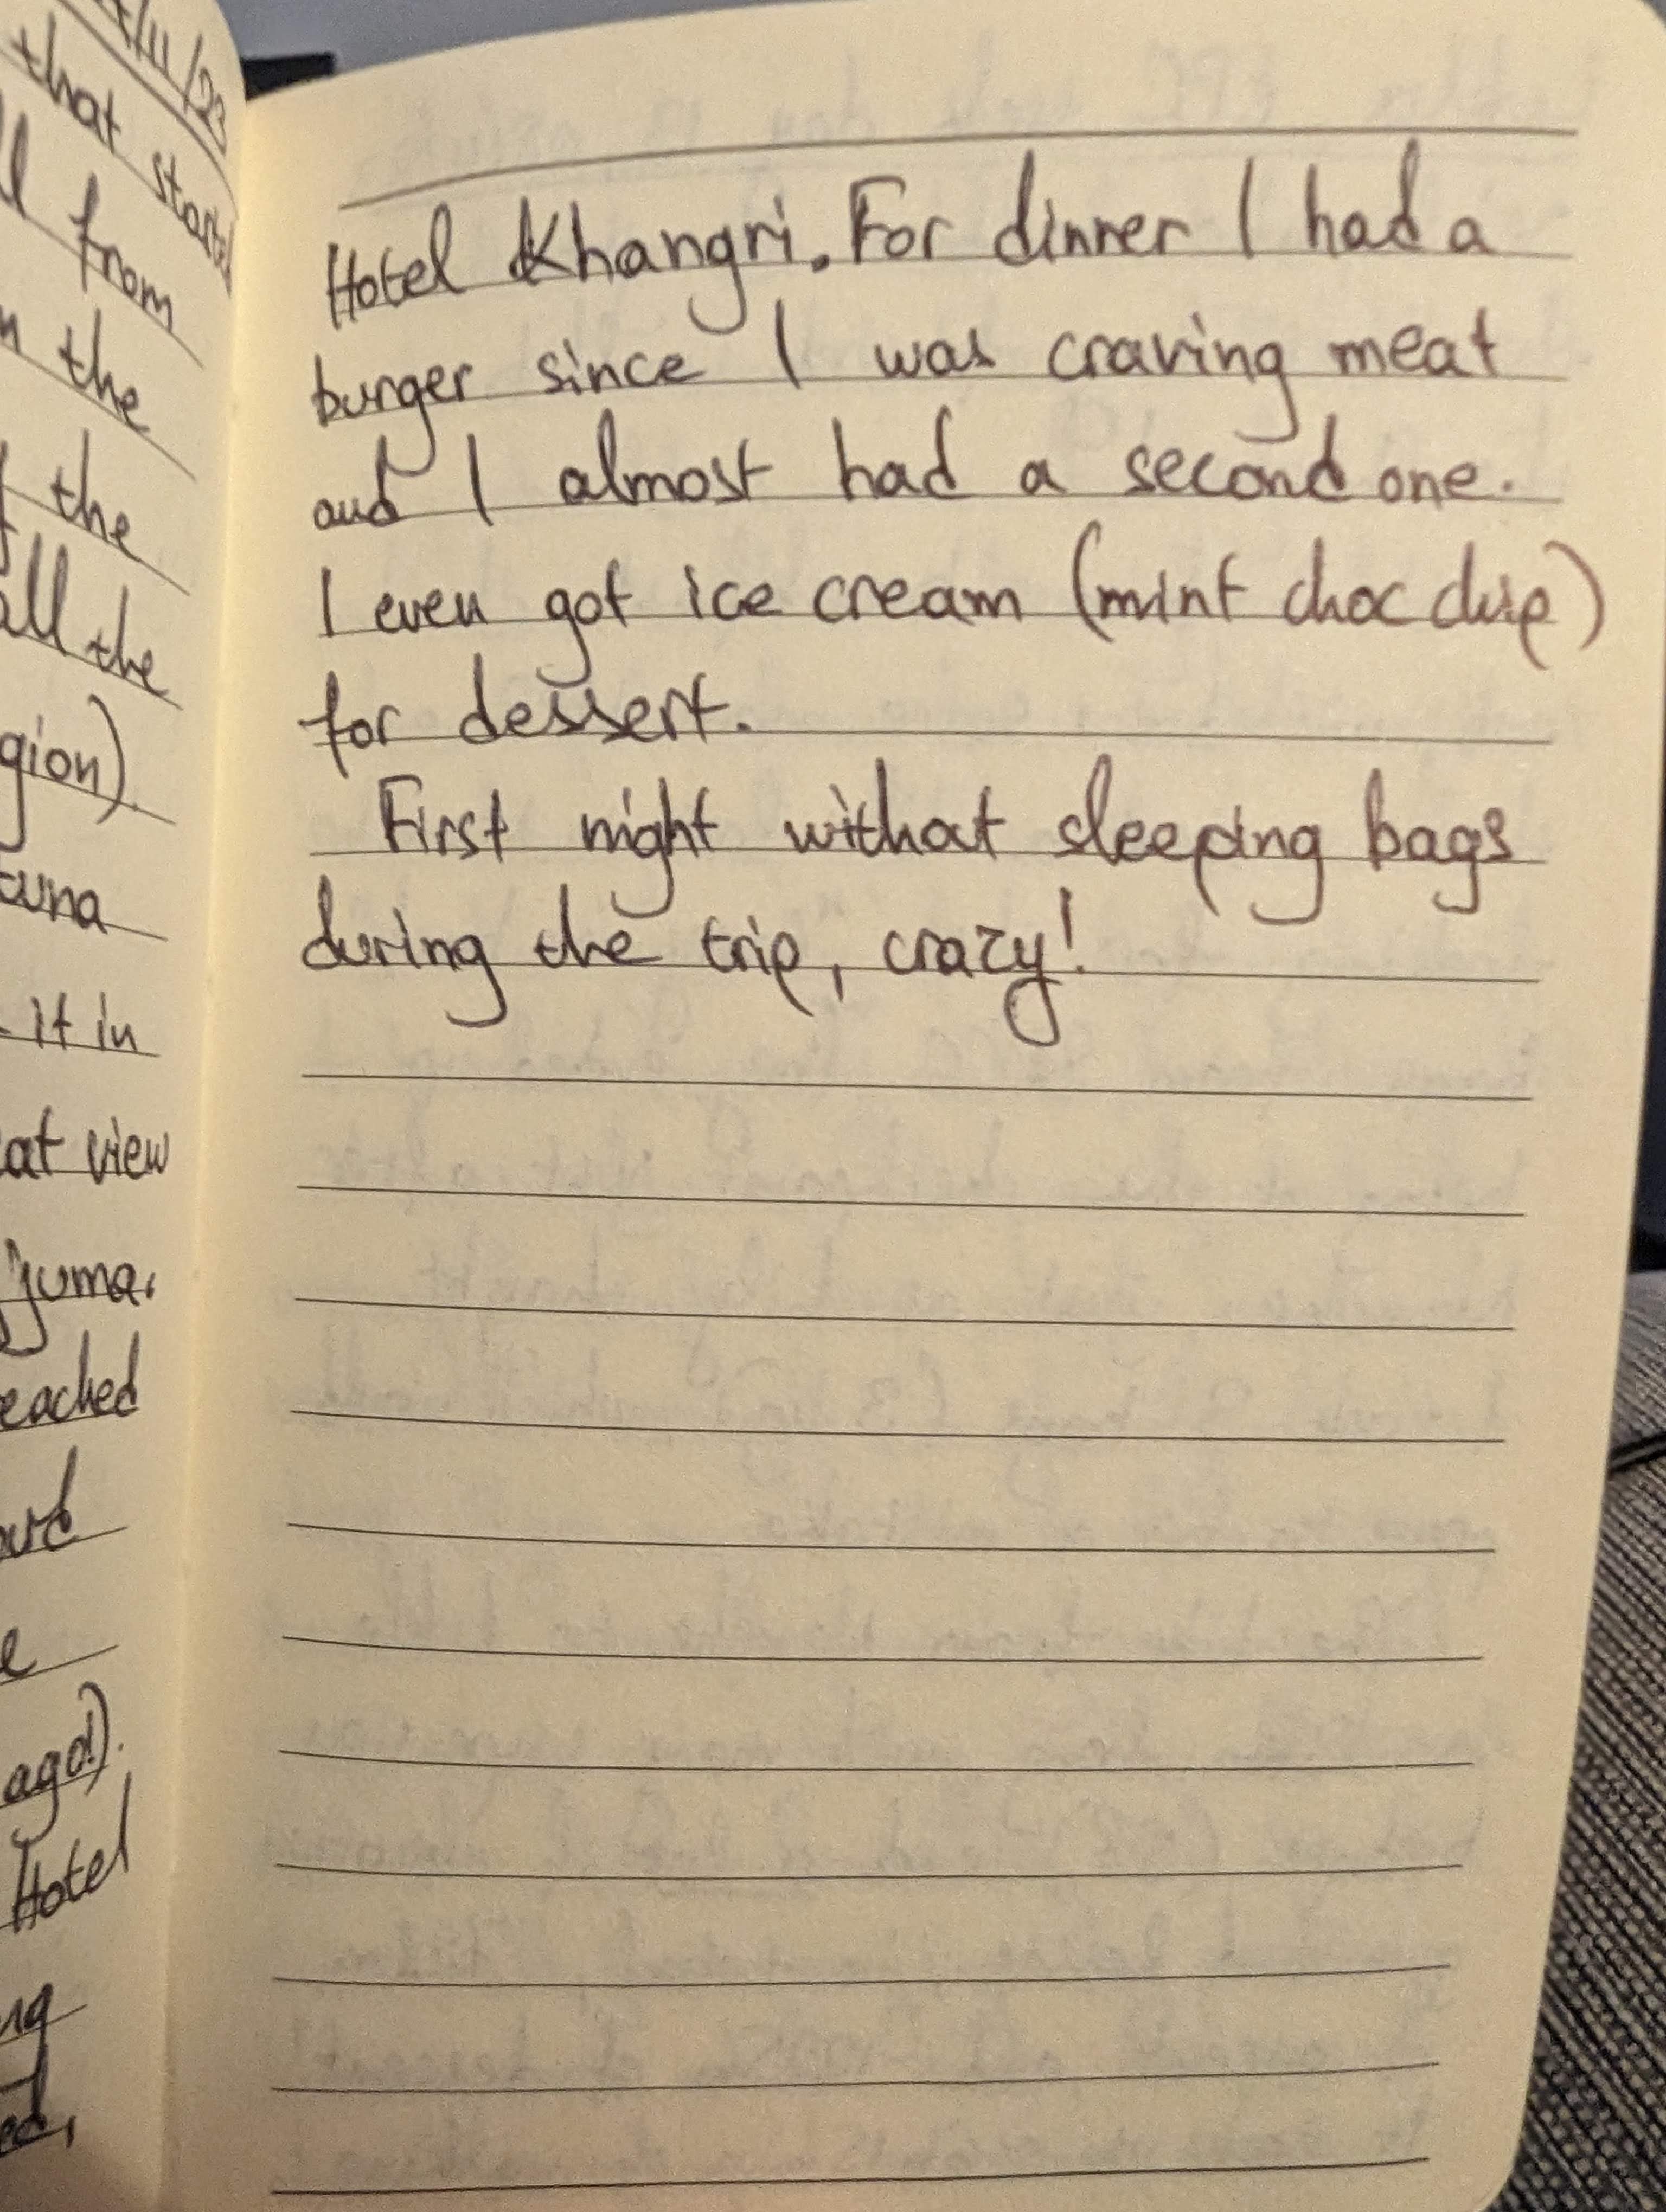 /11/23
that started
from
the
the
all the
gion).
it in
at view
juma.
eached
ago!).
Hotel
Hotel Khangri. For dinner I had a
burger since I was craving meat
and I almost had a second one.
I even got ice cream (mint choc chip)
for dessert.
First night without sleeping bags
during the trip, crazy!